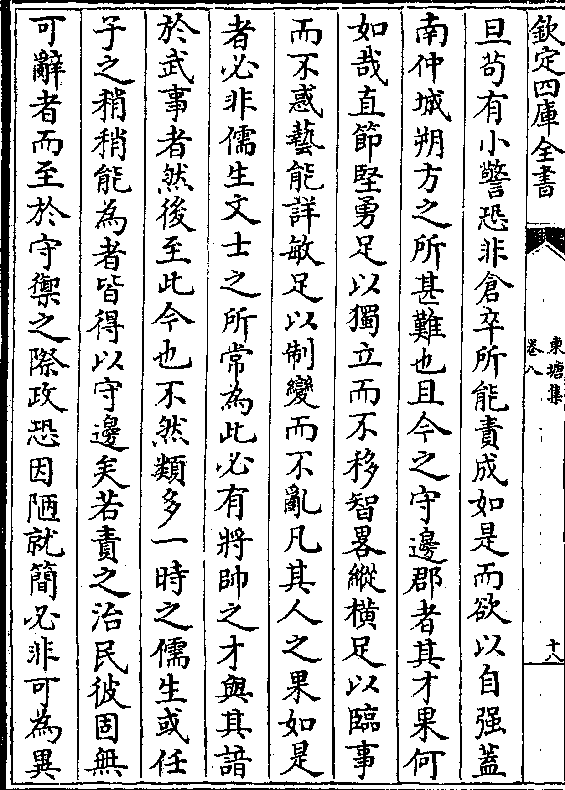 欽定四庫全書
東塘集
卷八
十八
旦茍有小警恐非倉卒所能責成如是而欲以自强蓋
南仲城朔方之所甚難也且今之守邊郡者其才果何
如哉直節堅勇足以獨立而不移智畧縱橫足以臨事
而不惑藝能詳敏足以制變而不亂凡其人之果如是
者必非儒生文士之所常為此必有將帥之才與其諳
於武事者然後至此今也不然類多一時之儒生或任
子之稍稍能為者皆得以守邊矣若責之治民彼固無
可辭者而至於守禦之際政恐因陋就簡必非可為異